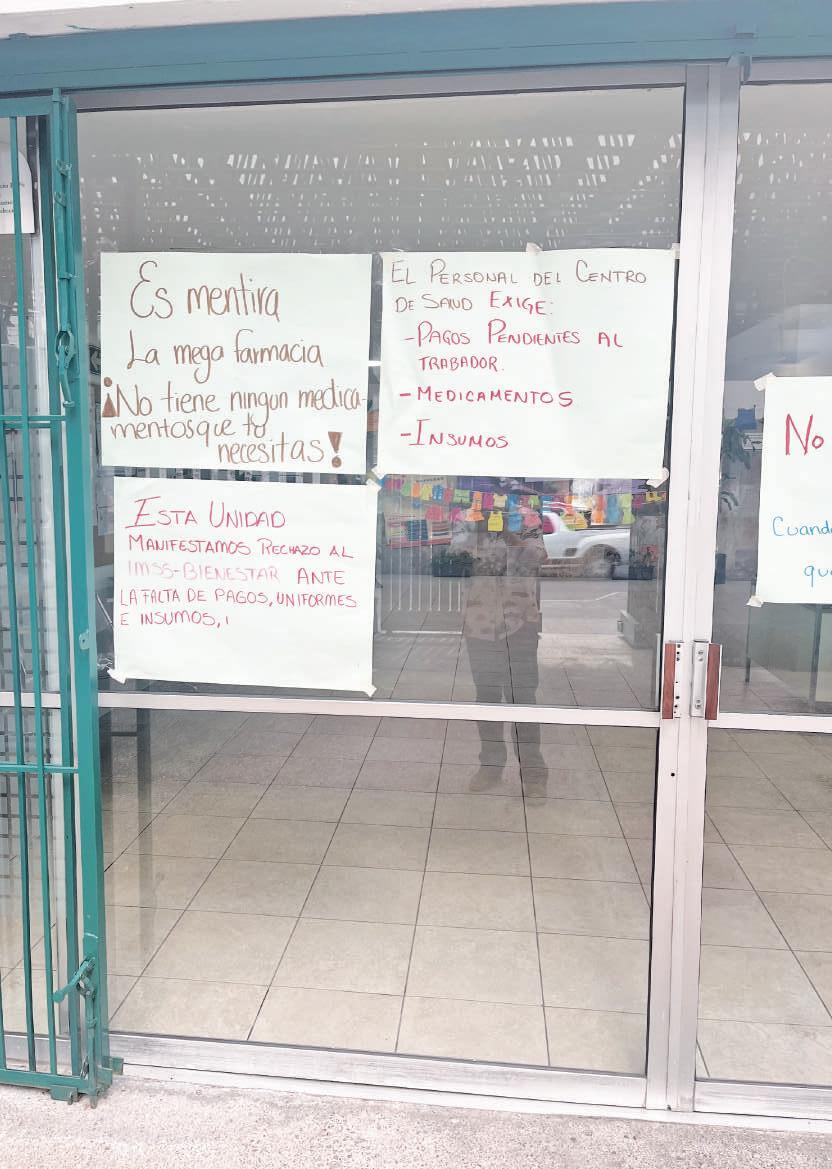 Es mentira
La mega farmacia
¡No tiene ningun medica-
mentos que tu
necesitas!
EL PERSONAL DEL CENTRO
DE SALUD EXIGE:
-PAGOS PENDIENTES AL
TRABADOR.
- MEDICAMENTOS
-INSUMOS
ESTA UNIDAD
MANIFESTAMOS RECHAZO AL
IMSS-BIENESTAR ANTE
LA FALTA DE PAGOS, UNIFORMES
E INSUMOS,
No